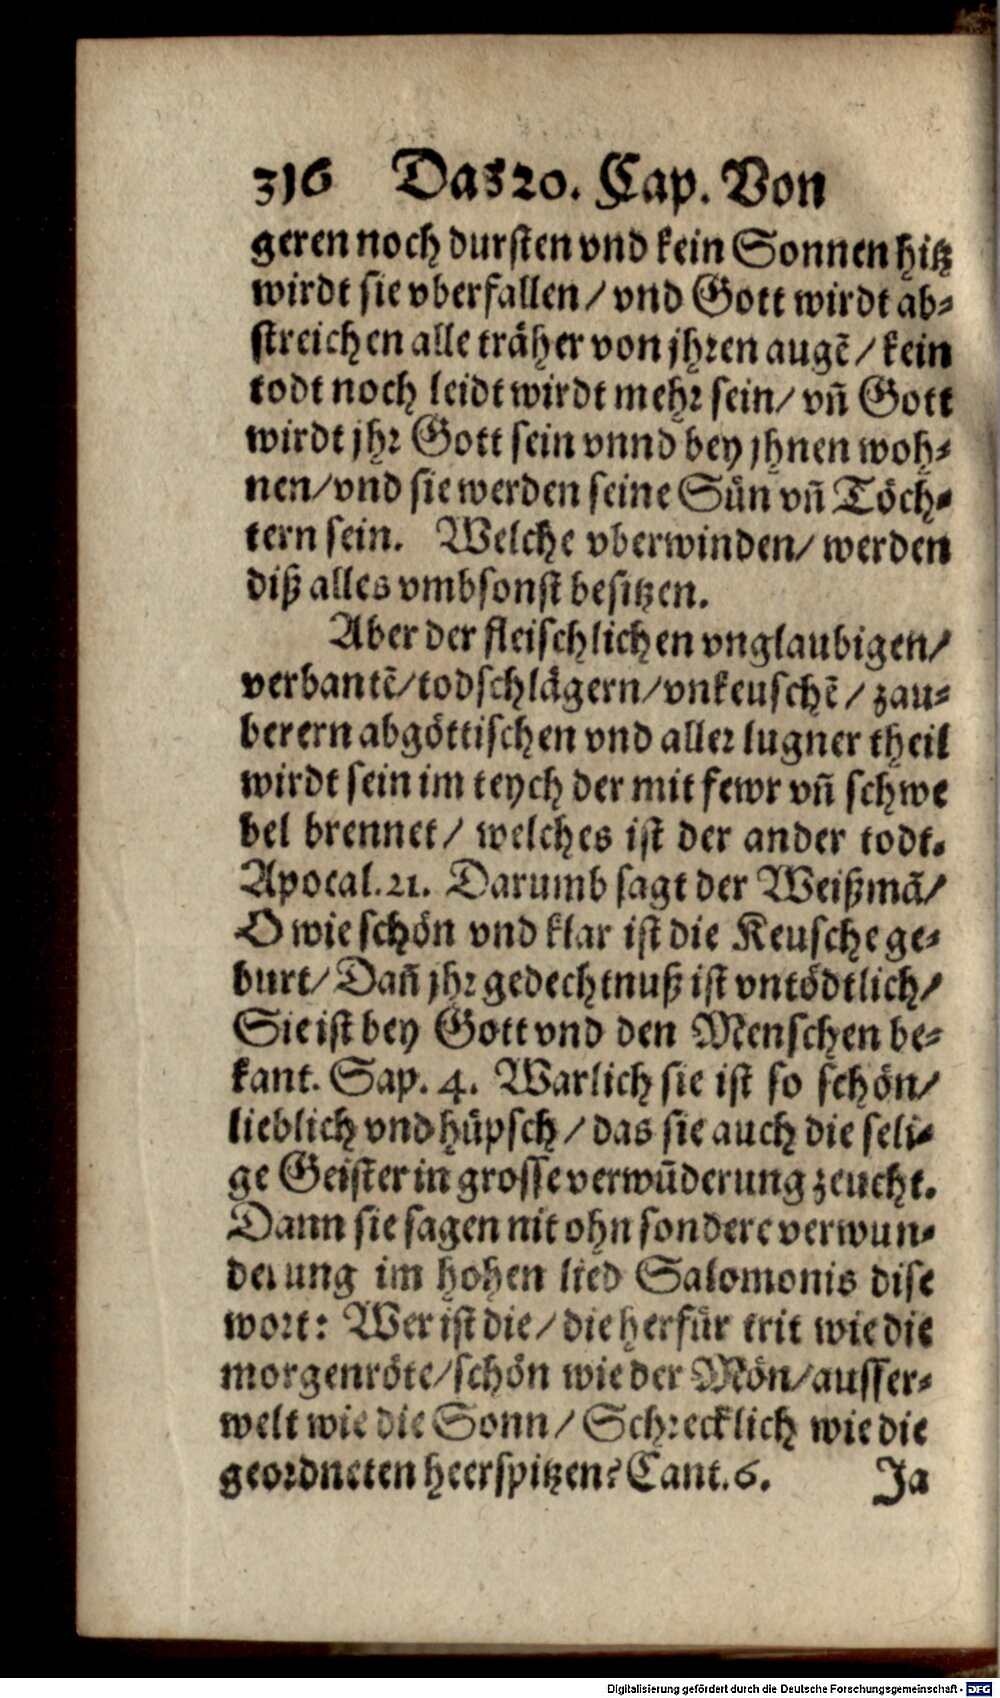 316 Das 20. Cap. Von
geren noch dursten vnd kein Sonnen hitz
wirdt sie vberfallen / vnd Gott wirdt ab-
streichen alle träher von jhren augẽ / kein
todt noch leidt wirdt mehr sein / vñ Gott
wirdt jhr Gott sein vnnd bey jhnen woh-
nen / vnd sie werden seine Sün vñ Töch-
tern sein. Welche vberwinden / werden
diß alles vmbsonst besitzen.
Aber der fleischlichen vnglaubigen /
verbantẽ / todschlägern / vnkeuschẽ / zau-
berern abgöttischen vnd aller lugner theil
wirdt sein im teych der mit fewr vñ schwe
bel brennet / welches ist der ander todt.
Apocal. 21. Darumb sagt der Weißmã /
O wie schön vnd klar ist die Keusche ge-
burt / Dañ jhr gedechtnuß ist vntödtlich /
Sie ist bey Gott vnd den Menschen be-
kant. Sap. 4. Warlich sie ist so schön /
lieblich vnd hüpsch / das sie auch die seli-
ge Geister in grosse verwũderung zeucht.
Dann sie sagen nit ohn sondere verwun-
derung im hohen lied Salomonis dise
wort: Wer ist die / die herfür trit wie die
morgenröte / schön wie der Mön / ausser-
welt wie die Sonn / Schrecklich wie die
geordneten heerspitzen? Cant. 6. Ja
Digitalisierung gefördert durch die Deutsche Forschungsgemeinschaft - DFG